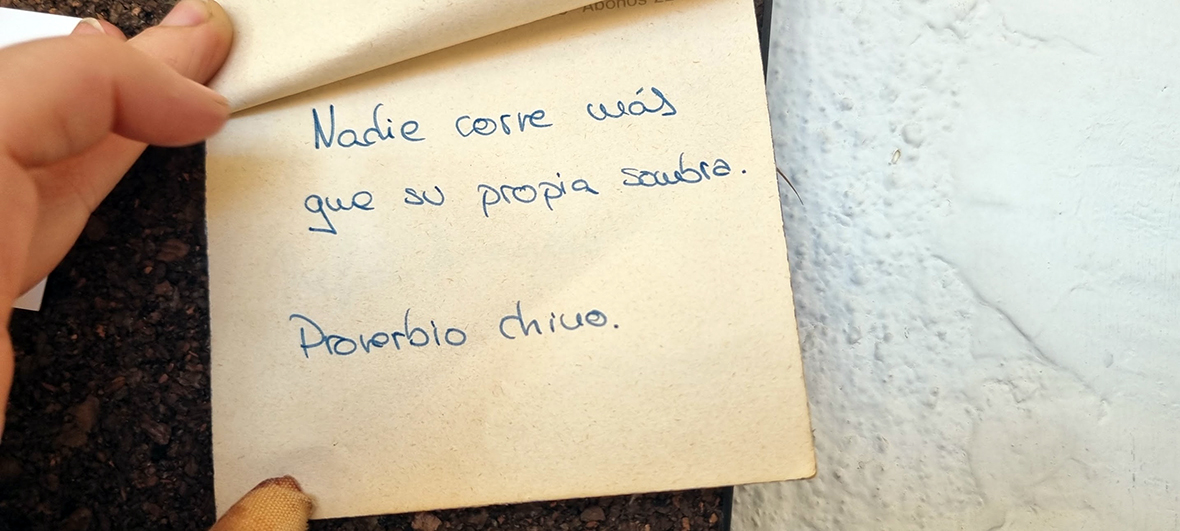 Abonos
Nadie corre más
que su propia sombra.
Proverbio chino.